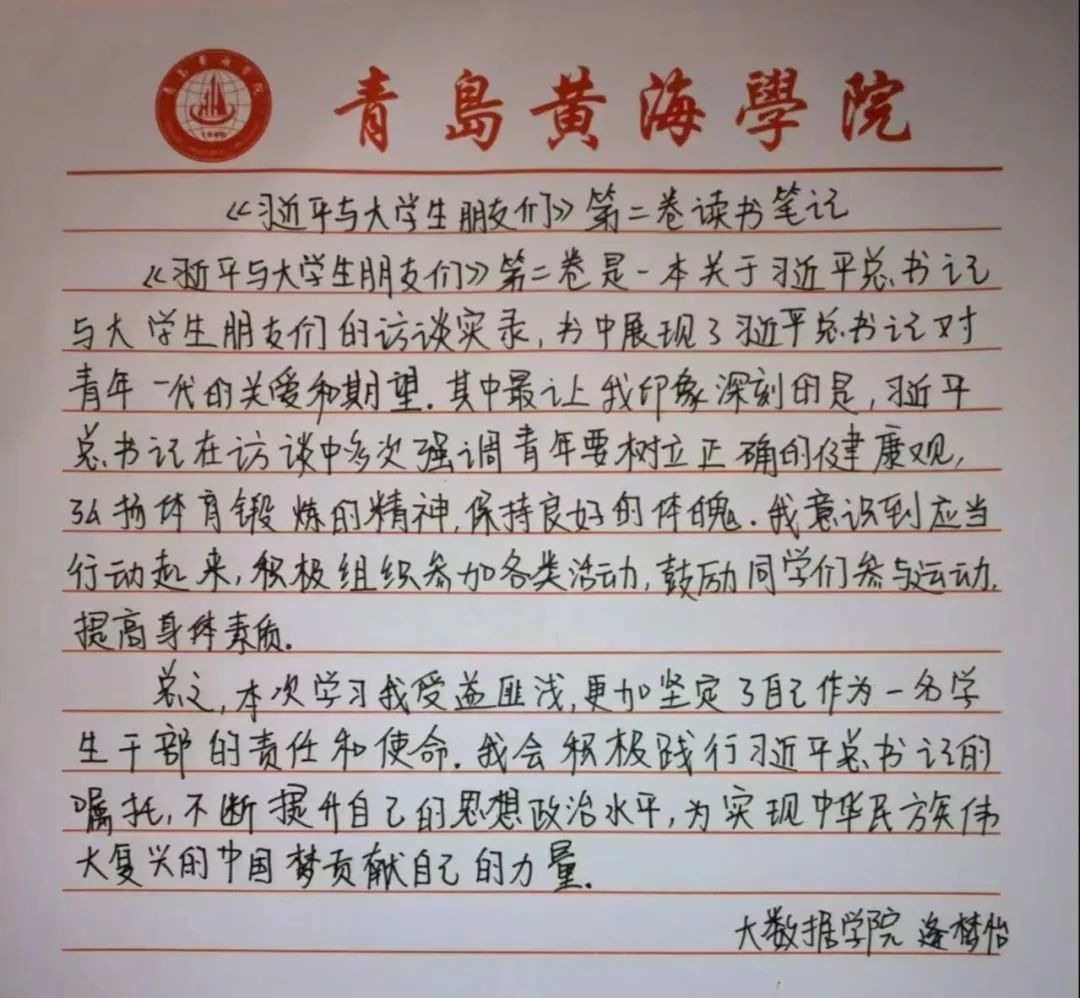 青島黄海學院
《习近平与大学生朋友们》第二卷读书笔记
《习近平与大学生朋友们》第二卷是一本关于习近平总书记
与大学生朋友们的访谈实录，书中展现了习近平总书记对
青年一代的关爱和期望。其中最让我印象深刻的是，习近平
总书记在访谈中多次强调青年要树立正确的健康观，
弘扬体育锻炼的精神，保持良好的体魄。我意识到应当
行动起来，积极组织参加各类活动，鼓励同学们参与运动，
提高身体素质。
总之，本次学习我受益匪浅，更加坚定了自己作为一名学
生干部的责任和使命。我会积极践行习近平总书记的
嘱托，不断提升自己的思想政治水平，为实现中华民族伟
大复兴的中国梦贡献自己的力量。
大数据学院 逄梦怡